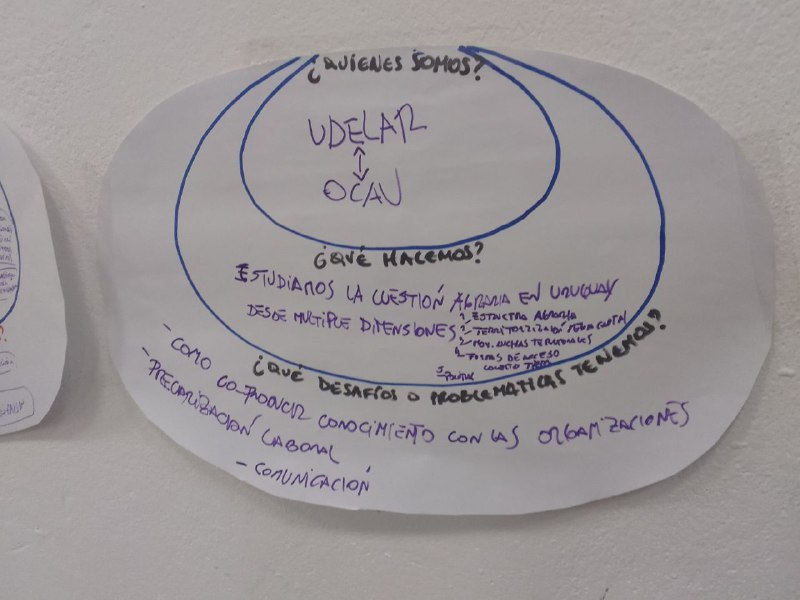 ¿QUIENES SOMOS?
UDELAR
OCAU
¿QUÉ HACEMOS?
ESTUDIAMOS LA CUESTIÓN AGRARIA EN URUGUAY
DESDE MÚLTIPLE DIMENSIONES
1. ESTRUCTRA AGRARIA
2. TERRITORIALIZACIÓN
3. MOV. LUCHAS TERRITORIALES
4. FORMAS DE ACCESO
COLECTIVO TIERRA
5.
¿QUÉ DESAFÍOS O PROBLEMÁTICAS TENEMOS?
- COMO CO-PRODUCIR CONOCIMIENTO CON LAS ORGAMIZACIONES
- PRECARIZACIÓN LABORAL
- COMUNICACIÓN